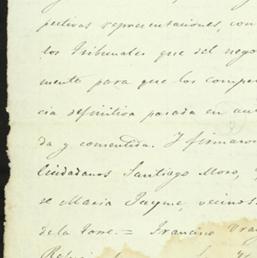 pectivas representaciones, con
los Tribunales que del nego
mente para que los compe
cia definitiva pasada en au
da y consentida. I firmaron
ciudadanos Santiago Moro,
se Maria Jayme, vecinos
de la Torre = Francisco